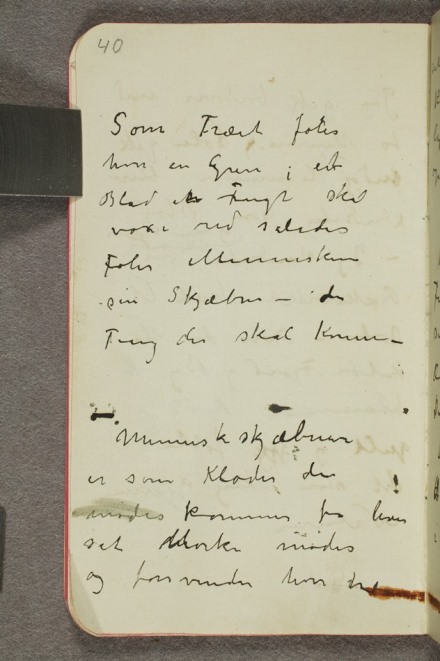 40
Som Træet føles
hvor en Gren ; et
Blad en Frugt skal
voxe ud således
føler Mennesken
sin Skjæbne – de
Ting der skal komme –
Menneskeskjæbner
er som Kloder der
mødes kommer fra hver
sit Mørke mødes
og forsvinder hver